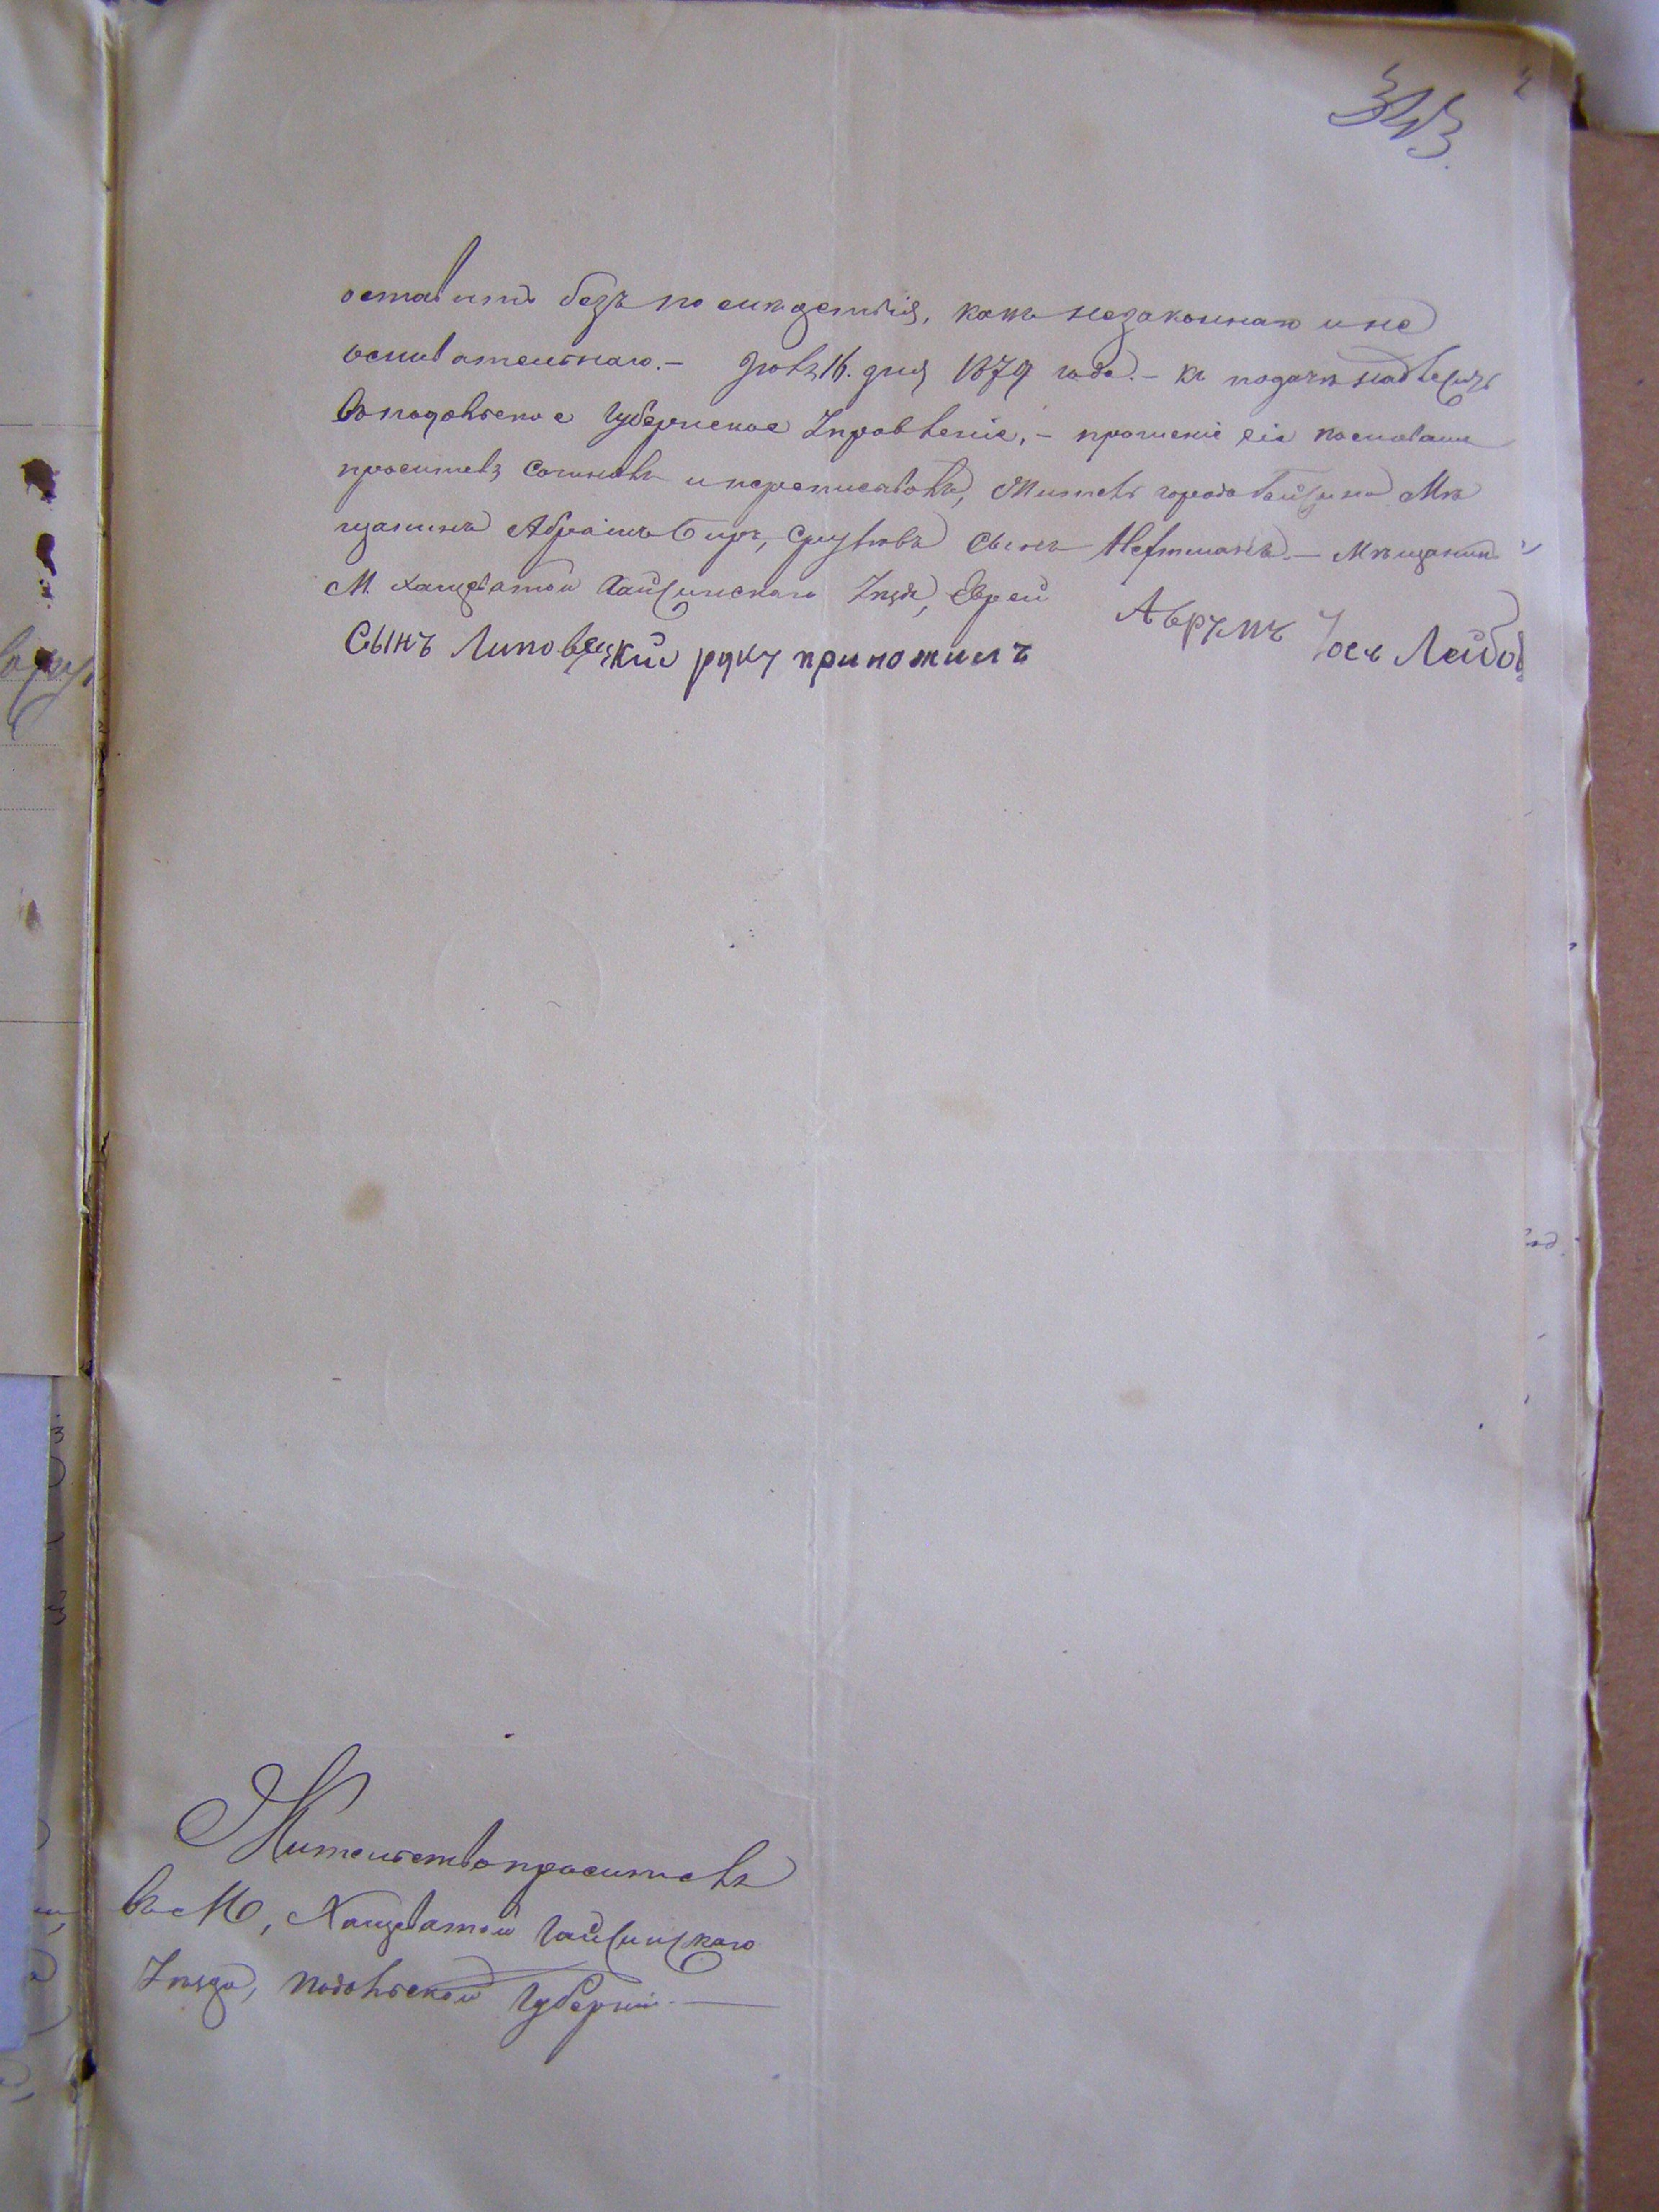 343
оставить безъ послѣдствія, какъ незаконнаго и не
основательнаго. — Іюля 16. дня 1879 года. — къ подачѣ надлежитъ
въ Подольское Губернское Управленіе, — прошеніе сіе пословамъ
просителя сочинялъ и переписывалъ, Житель города Гайсина Мѣ
щанинъ Абрамъ Беръ, Срулювъ Сынъ — Мѣщанинъ
М. Хащеватой Гайсинскаго Уѣзда, Еврей Аврумъ Іось Лейбов
Сынъ Липовецкій руку приложилъ
Жительство просителя
въ М, Хащеватой Гайсинскаго
Уѣзда, Подольской Губерніи. —